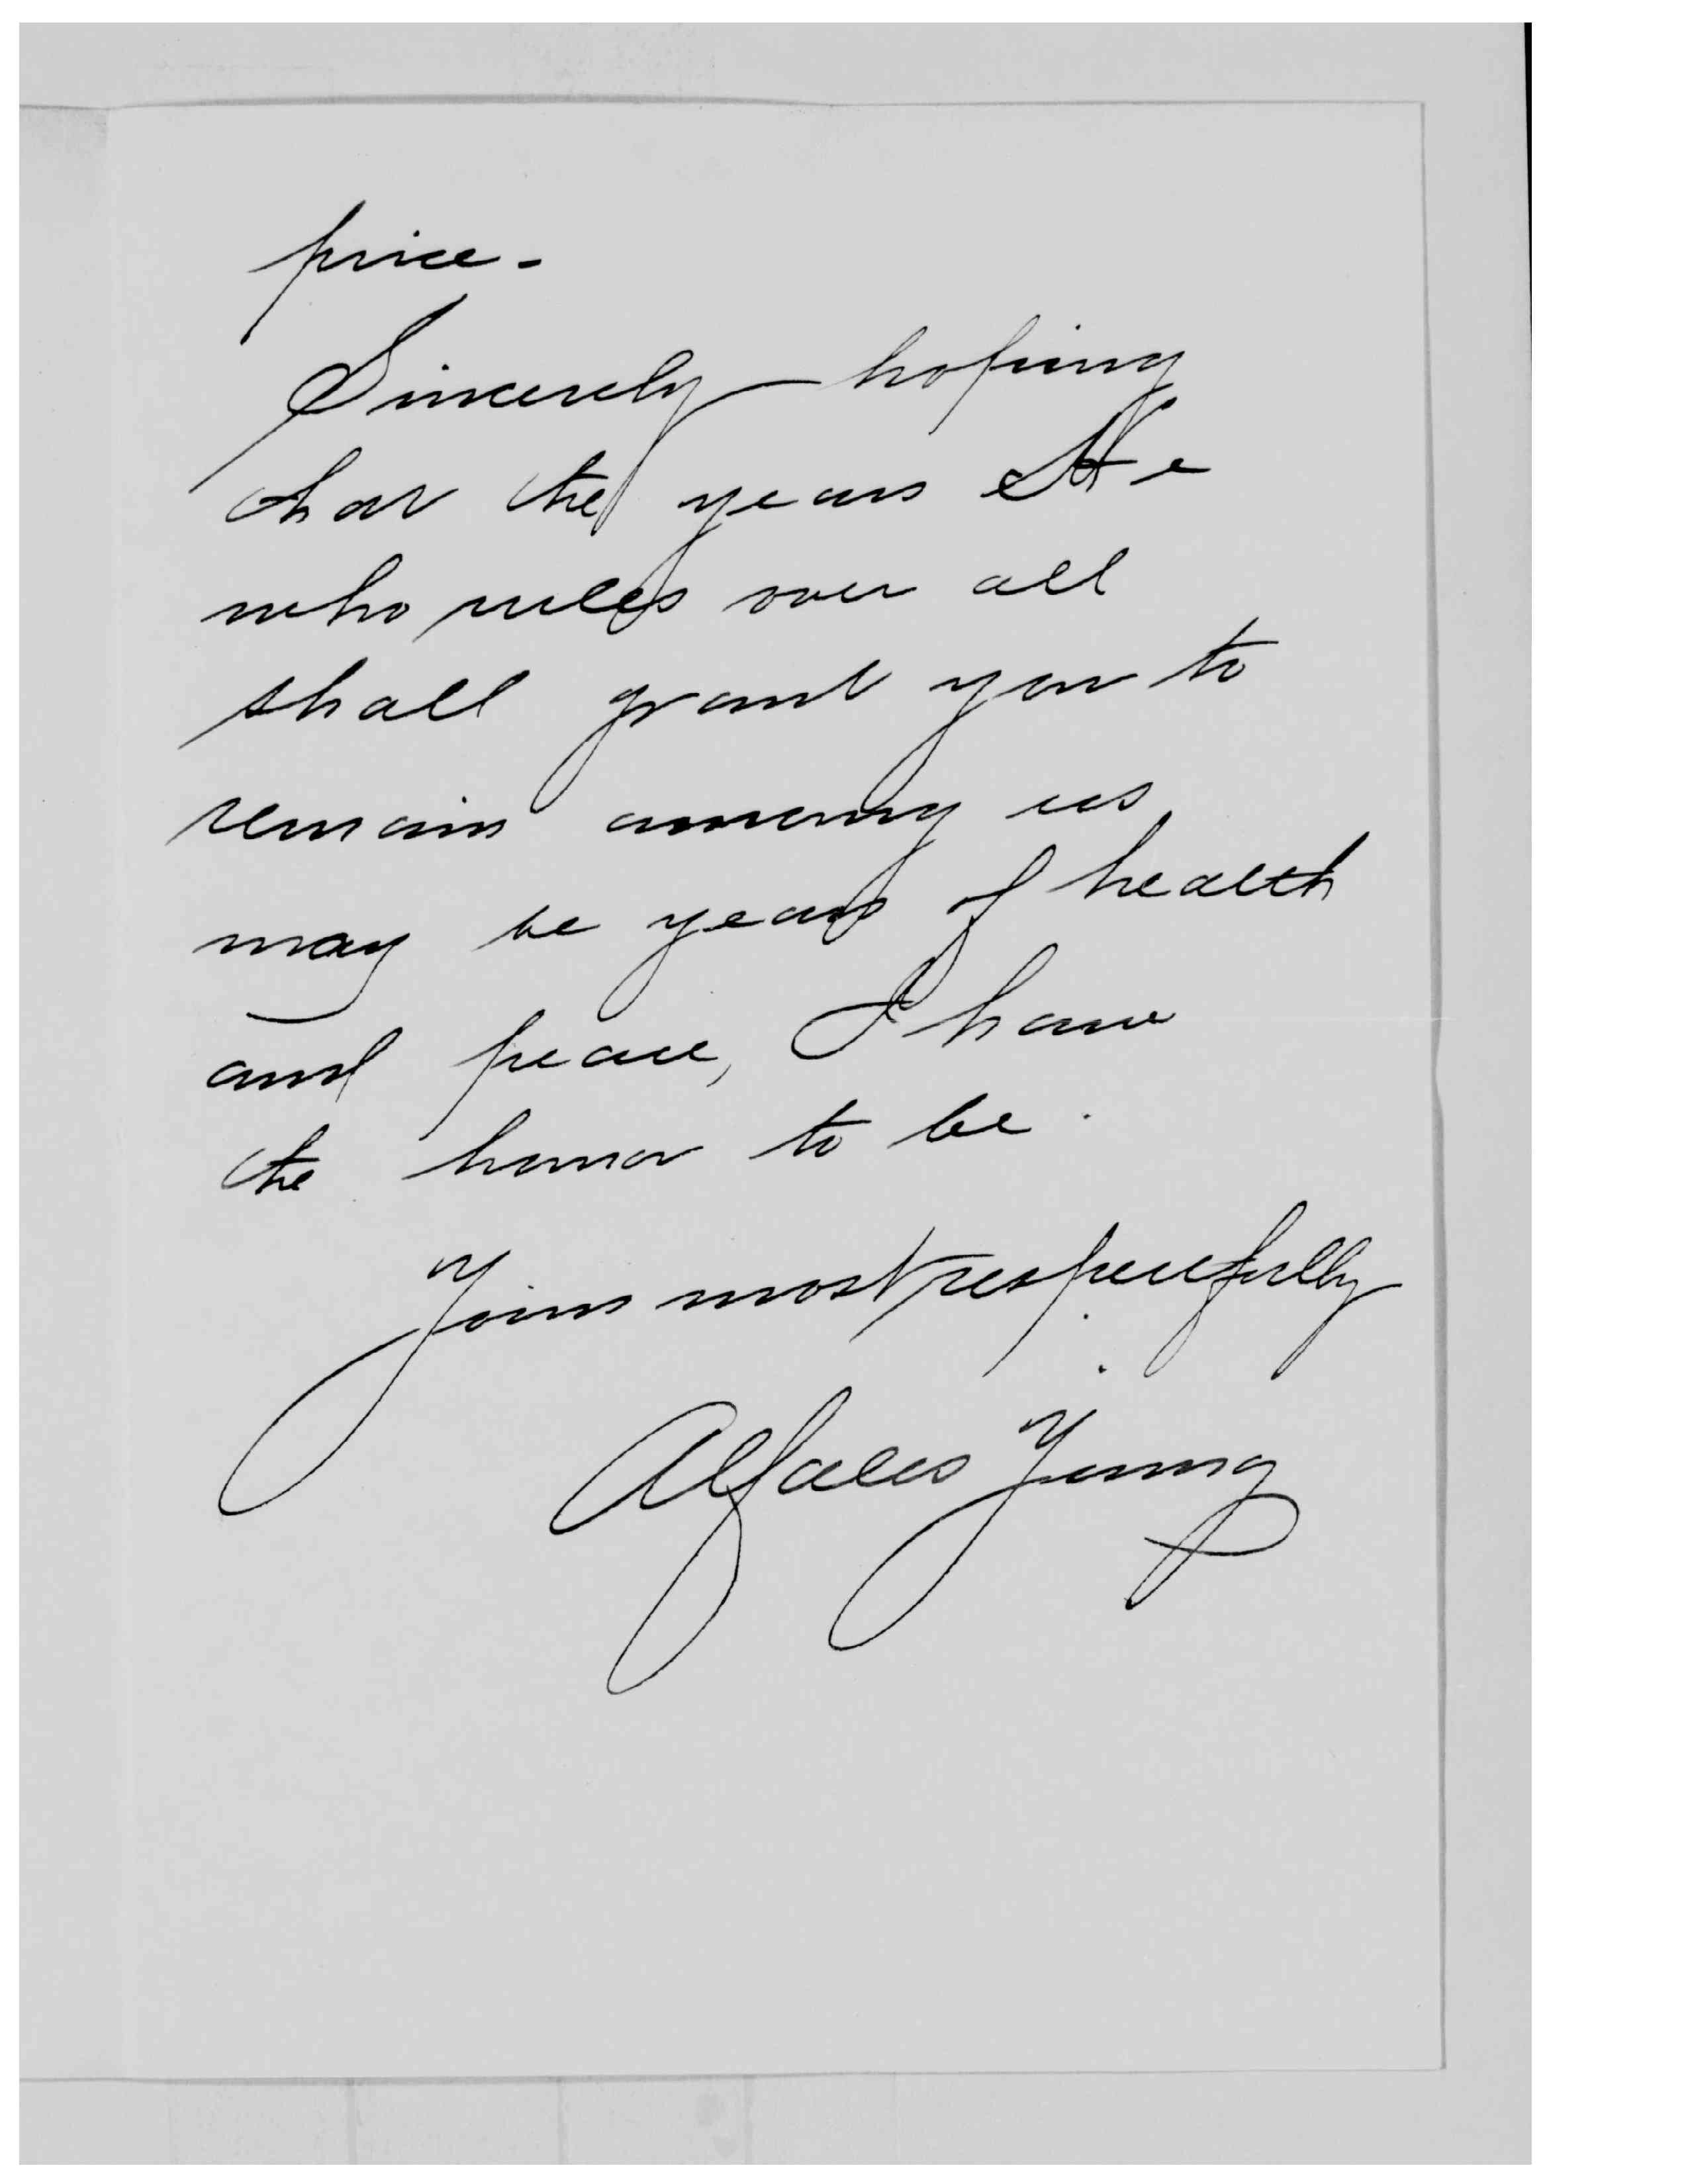 price.
Sincerely hoping
that the years He
who rules over all
shall grant you to
remain among us
may be years of health
and peace, I have
the honor to be.
Yours most respectfully
Alfales Young